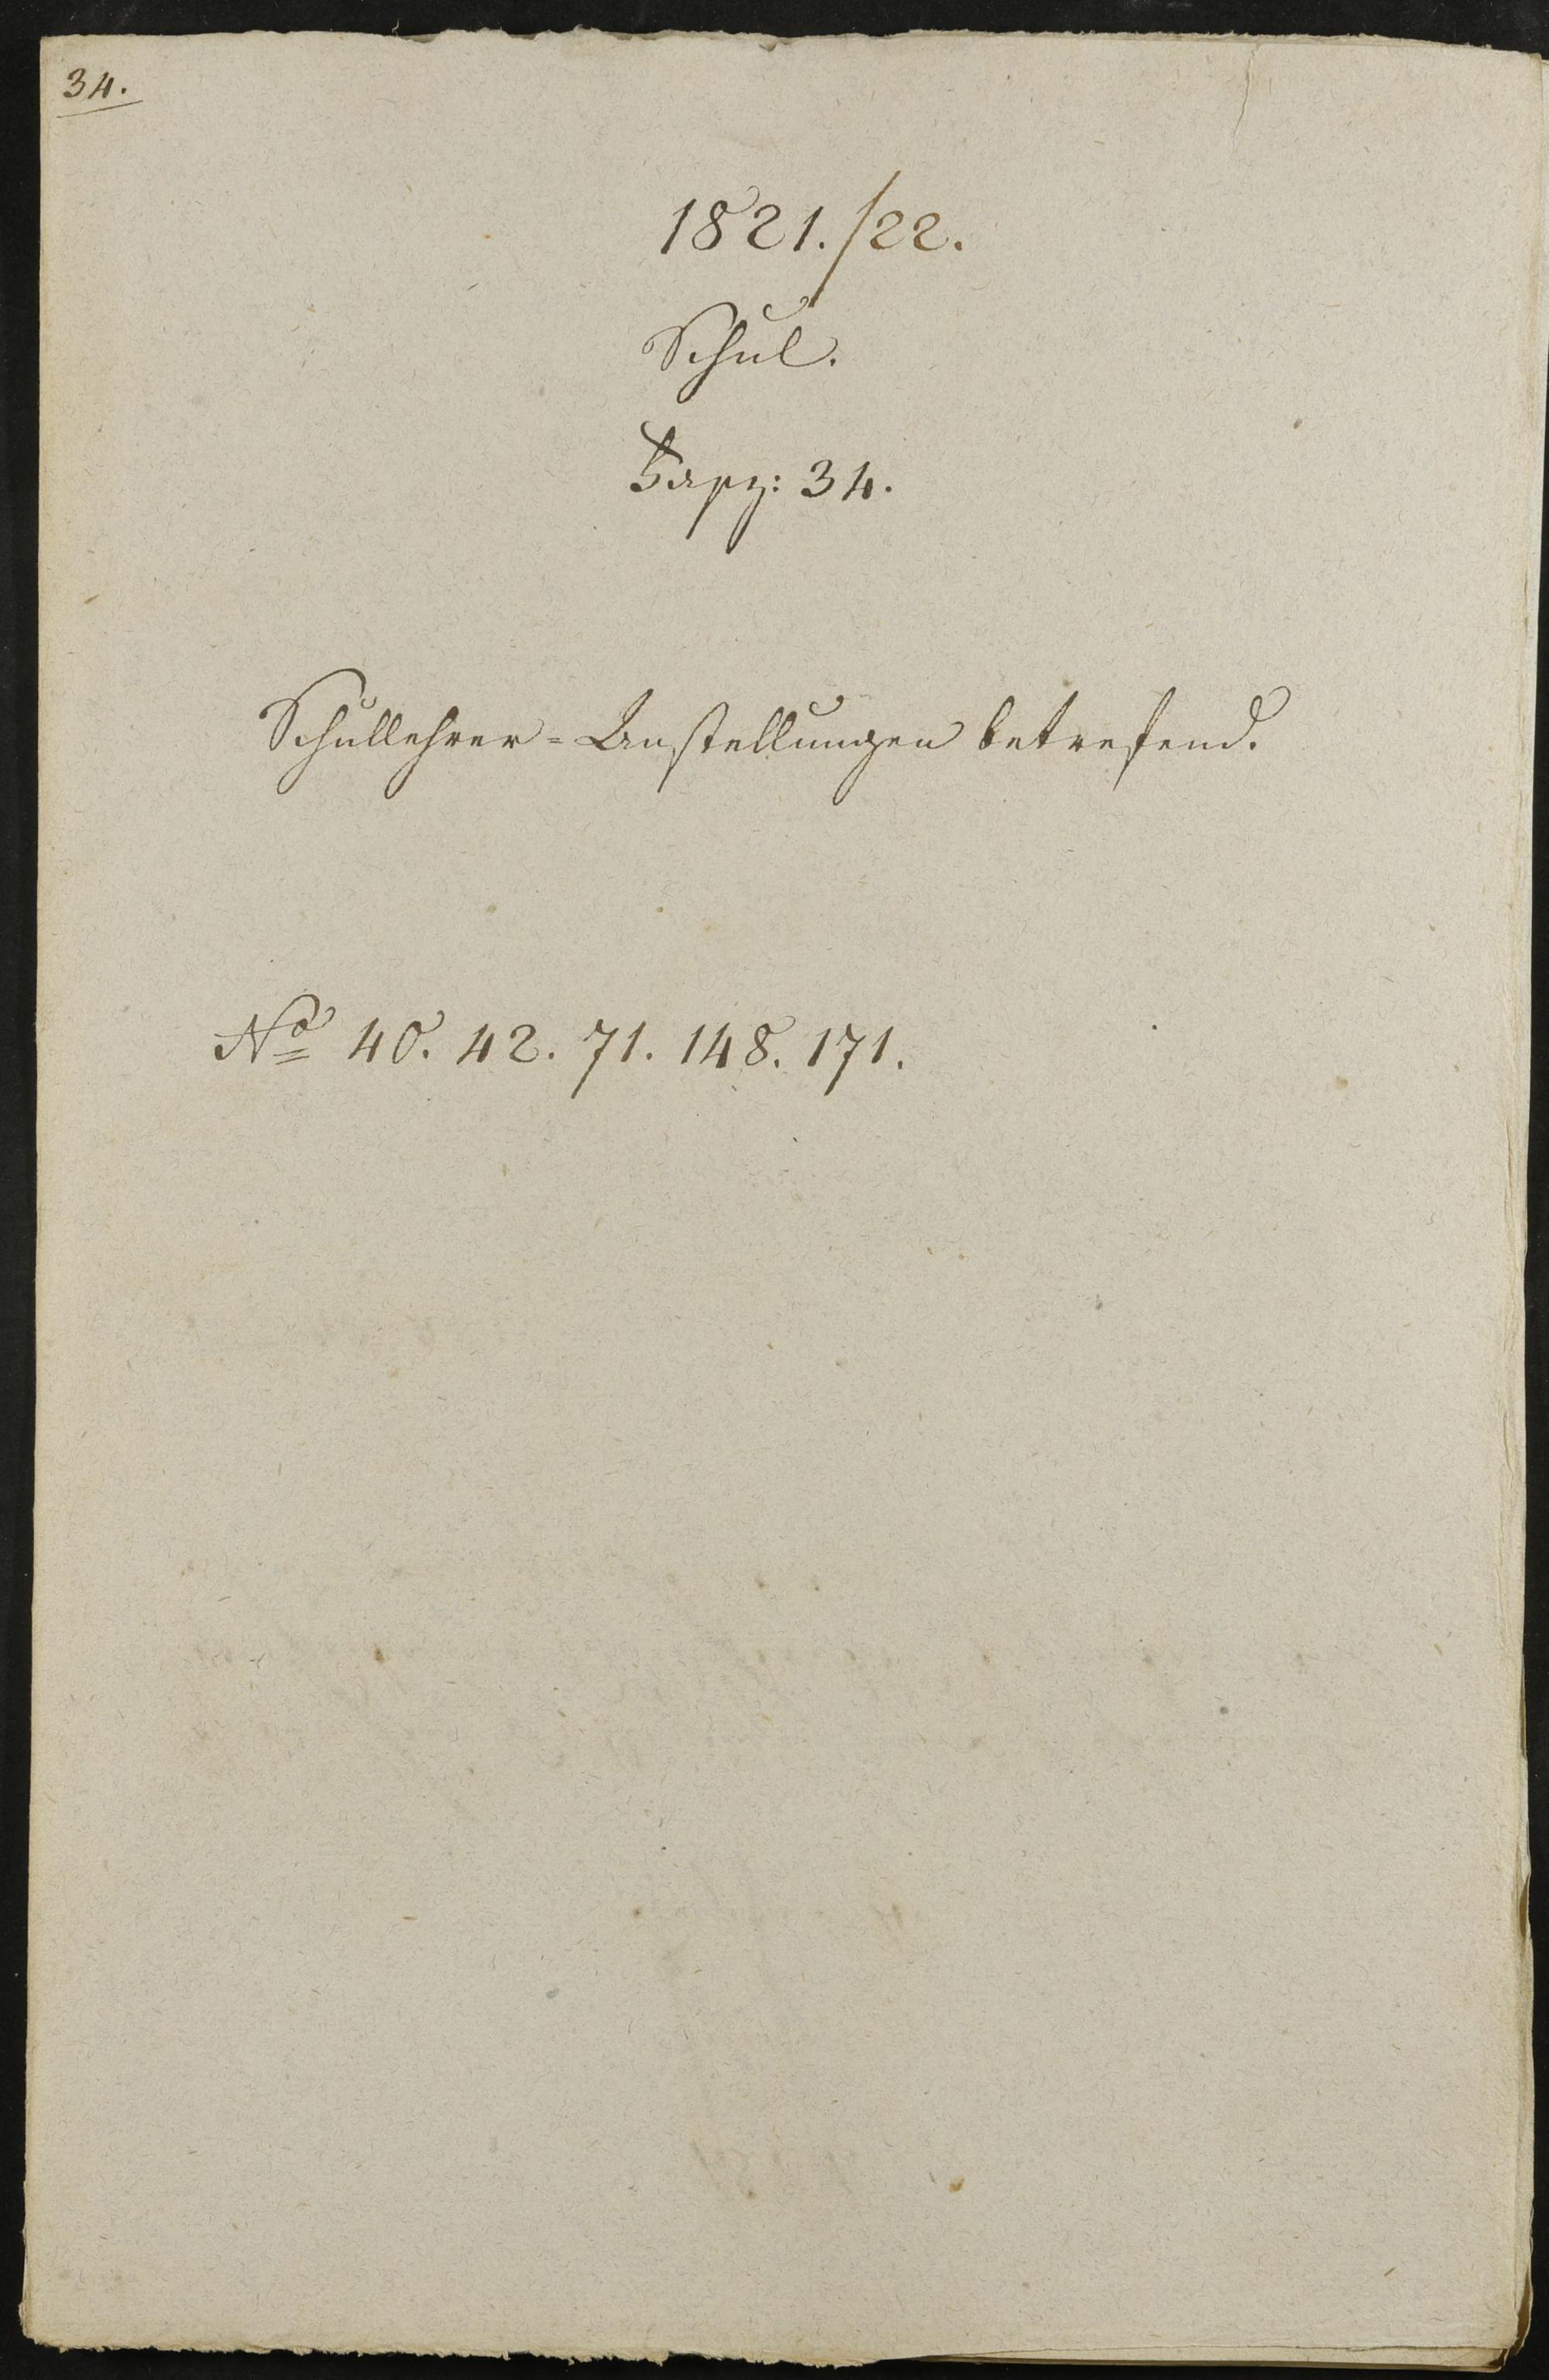 34.
1821./22.
Schul.
Fasz: 34.
Schullehrer=Anstellungen betrefend.
No 40. 42. 71. 148. 171.